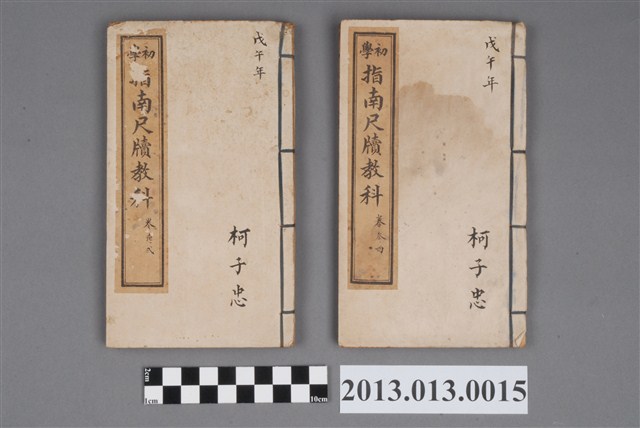 戊午年
柯子忠
初學
指南尺牘教科
戊午年
柯子忠
初學
指南尺牘教科
2cm
1cm
10cm
2013.013.0015